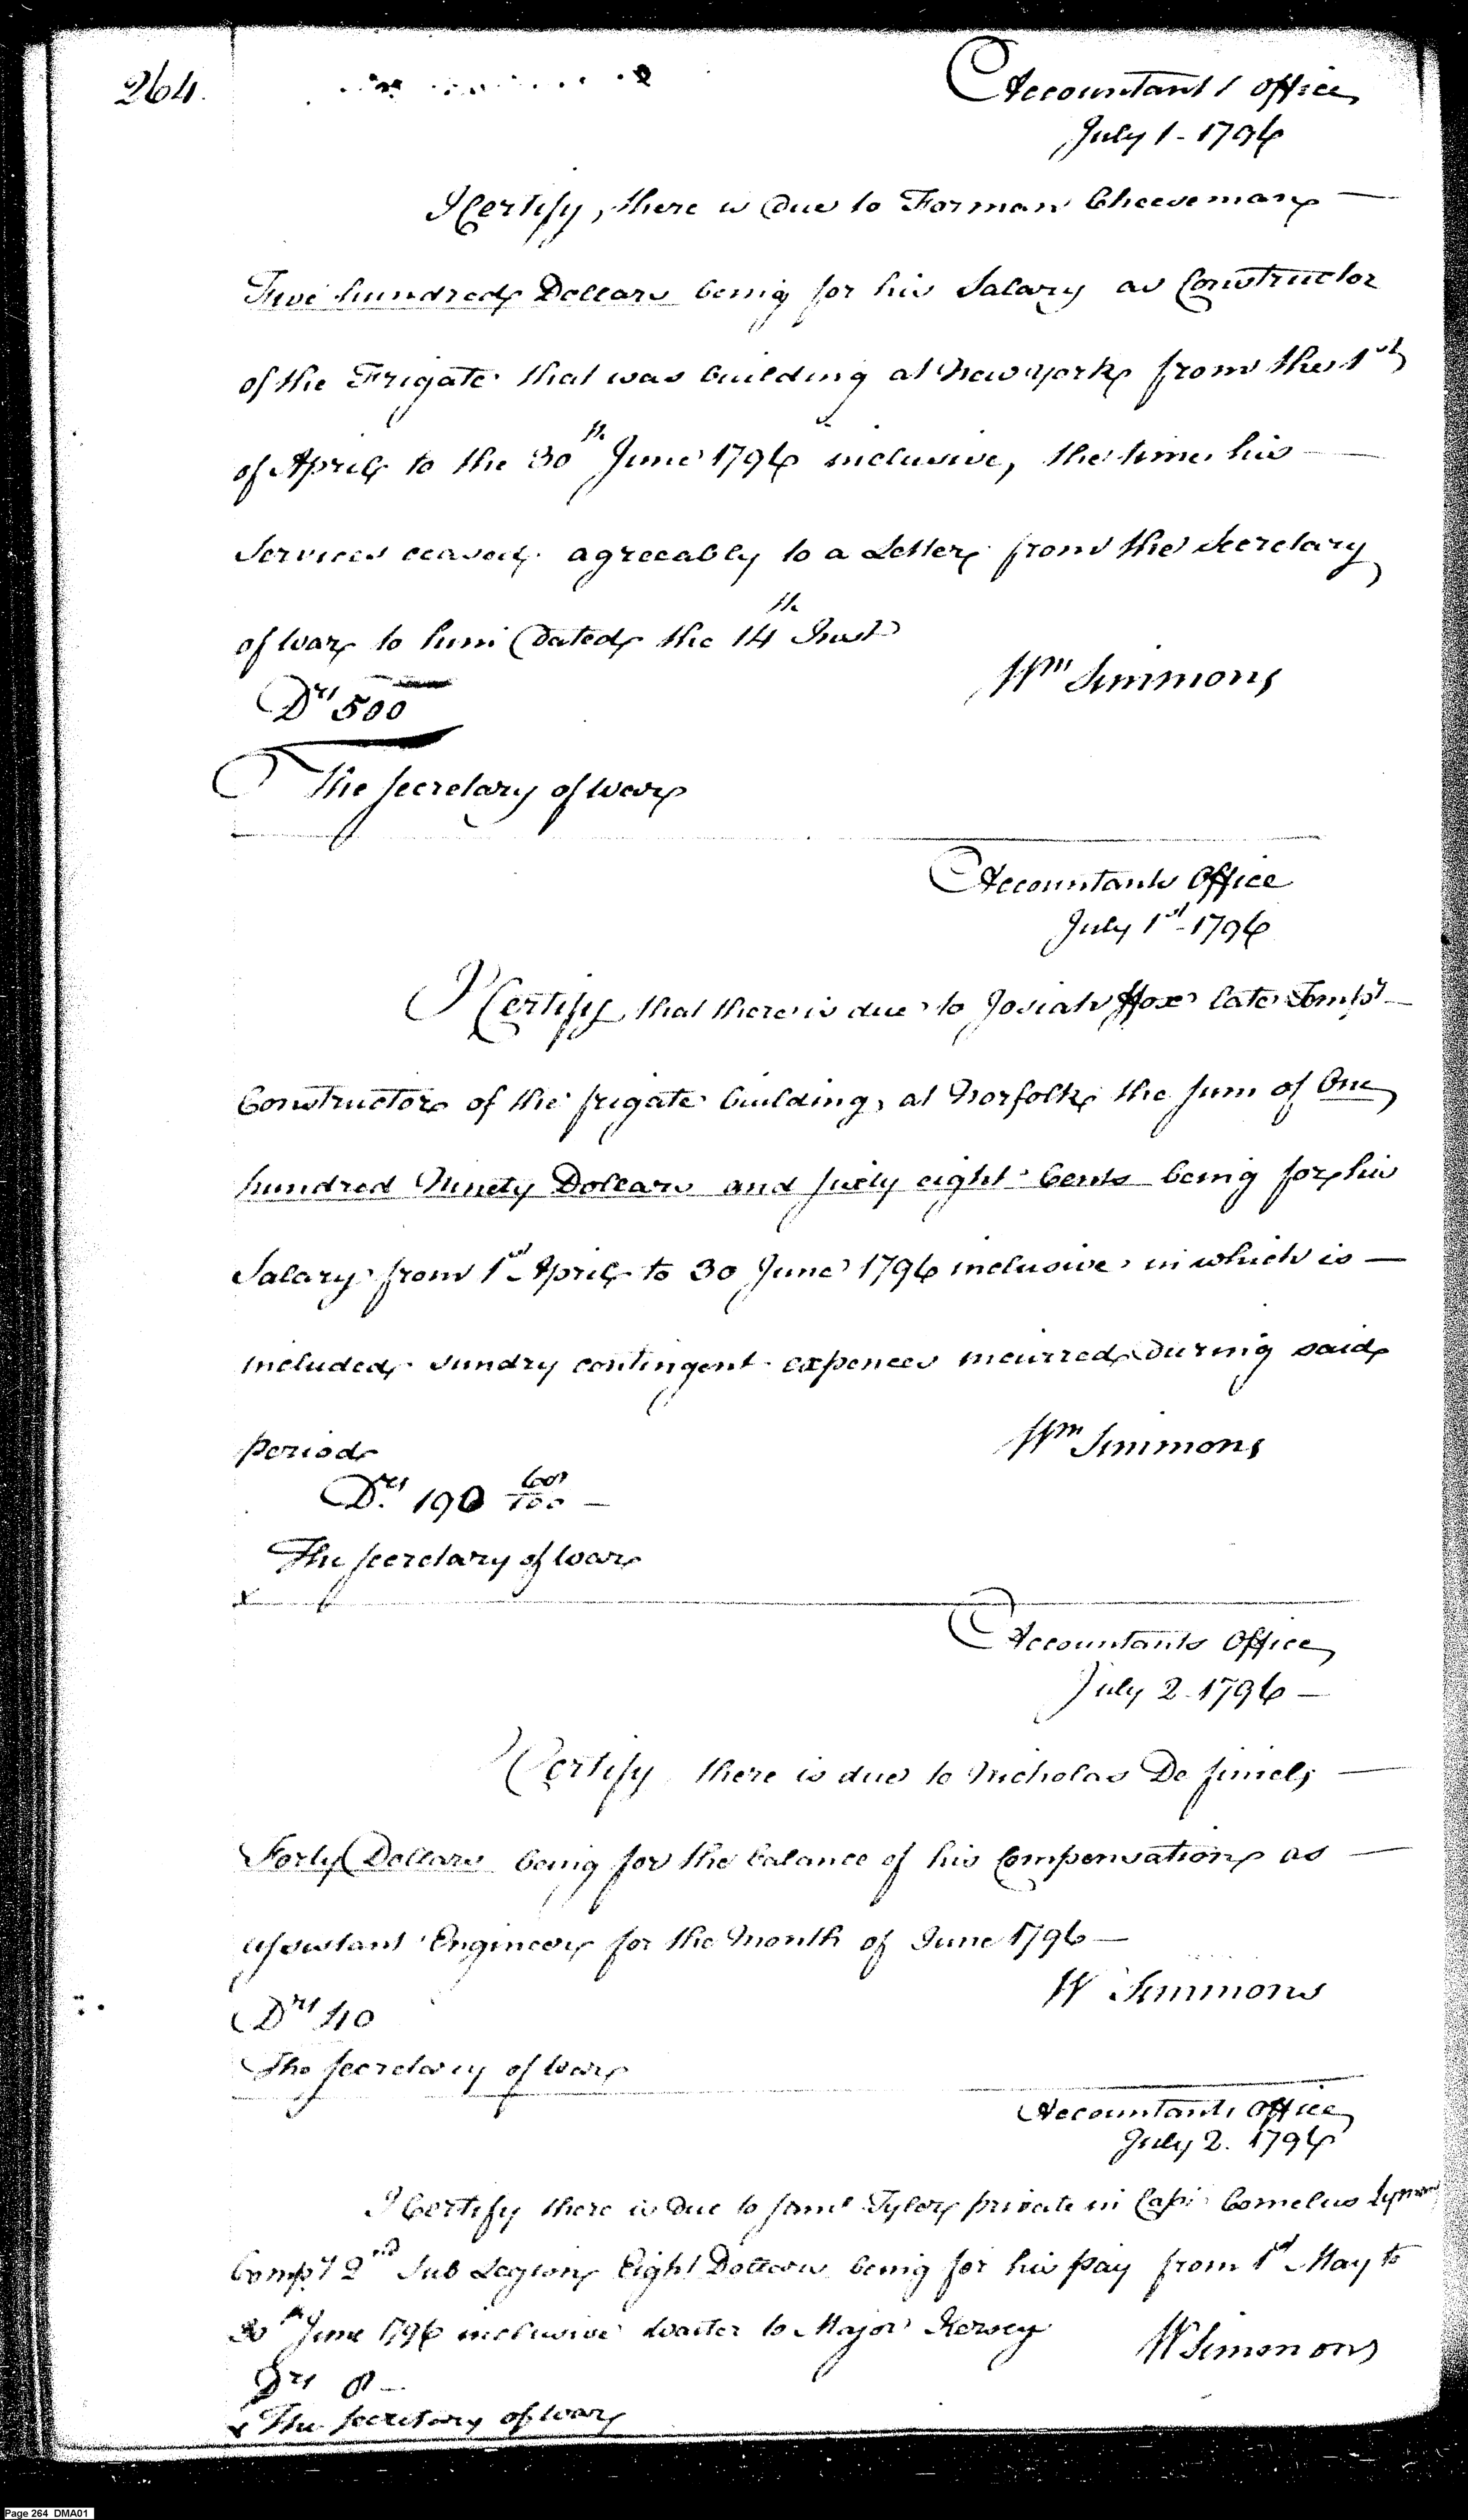 264.
Accountants Office
July 1 - 1796
I Certify, there is Due to Forman Cheeseman —
Five hundred Dollars being for his Salary as Constructor
of the Frigate that was building at New York from the 1st
of April to the 30th June 1796 inclusive, the time his —
Services ceased agreeably to a Letter from the Secretary
of War to him Dated the 14th Inst
Drs 500
Wm Simmons
The Secretary of War
Accountants Office
July 1st 1796
I Certify that there is due to Josiah Fox late Tempy —
Constructor of the frigate building at Norfolk the sum of One
hundred Ninety Dollars and sixty eight Cents being for his
Salary from 1st April to 30 June 1796 inclusive in which is —
included sundry contingent expences incurred During said
period
Wm Simmons
Drs 190 68/100 —
The Secretary of War
Accountants Office
July 2 - 1796 —
I Certify there is due to Nicholas De finiels —
Forty Dollars being for the balance of his Compensation as —
assistant Engineer for the Month of June 1796 —
W Simmons
Drs 40
The Secretary of War
Accountants Office
July 2. 1796
I Certify there is Due to Saml Tyler private in Capt Cornelius Lyman
Compy 2nd Sub Legion Eight Dollars being for his pay from 1st May to
30th June 1796 inclusive waiter to Major Kersey
W Simmons
Drs 8 —
x The Secretary of War
Page 264 DMA01